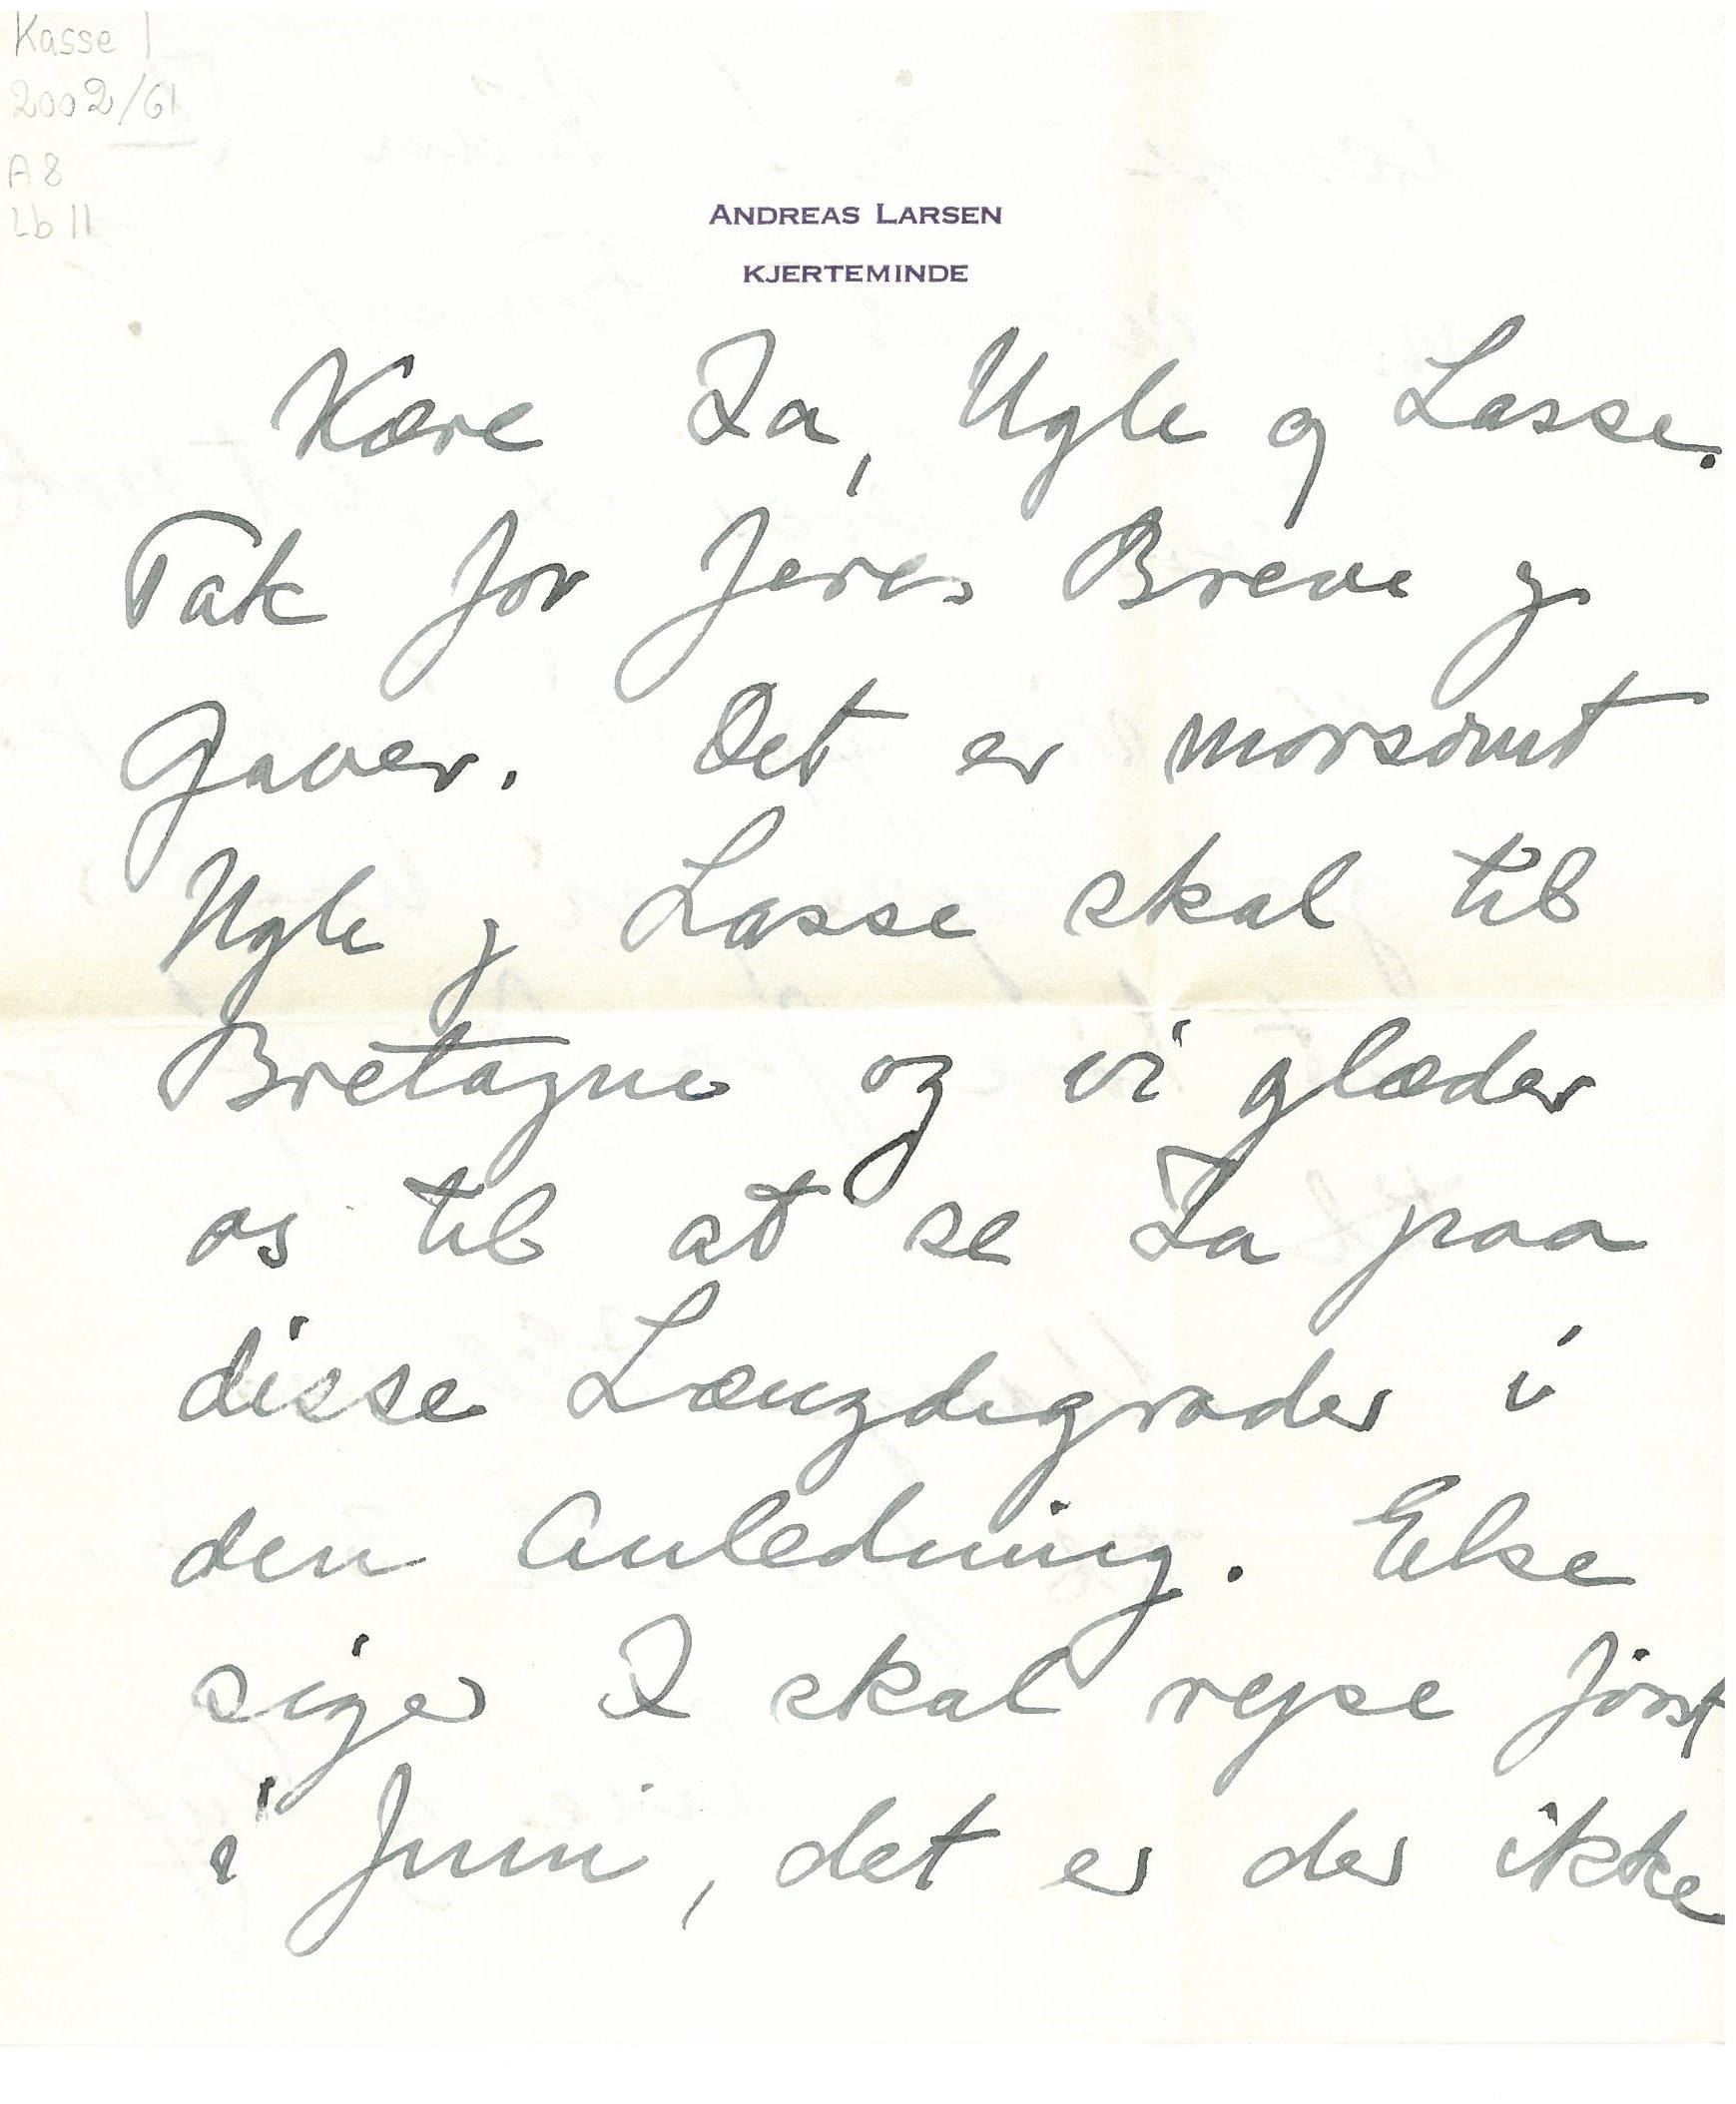 Kasse 1
2002/61
A8
Lb 11
ANDREAS LARSEN
KJERTEMINDE
Kære Ia, Ugle og Lasse.
Tak for Jeres Breve og
Gaver. Det er morsomt
Ugle og Lasse skal til
Bretagne og vi glæder
os til at se Ia paa
disse Længdegrader i
den Anledning. Else
siger I skal rejse først
i Juni, det er der ikke